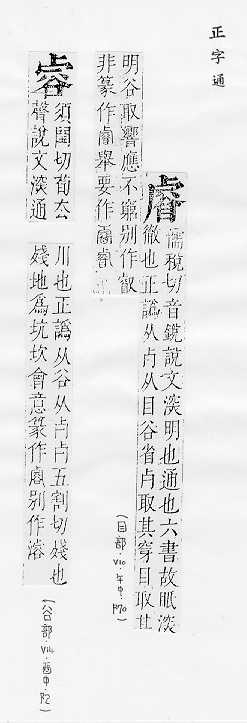 正字通
睿
儒稅切音銳說文深明也通也六書故眂深
徹也正譌从卢从目谷省卢取其穿目取其
明谷取響應不窮別作叡
非篆作睿舉要作
(目部·V10·午中·P70)
㕡 須閏切荀去
聲說文深通
川也正譌从谷从卢卢五割切殘也
殘地爲坑坎會意篆作別作濬
(谷部·V14·酉中·P2)